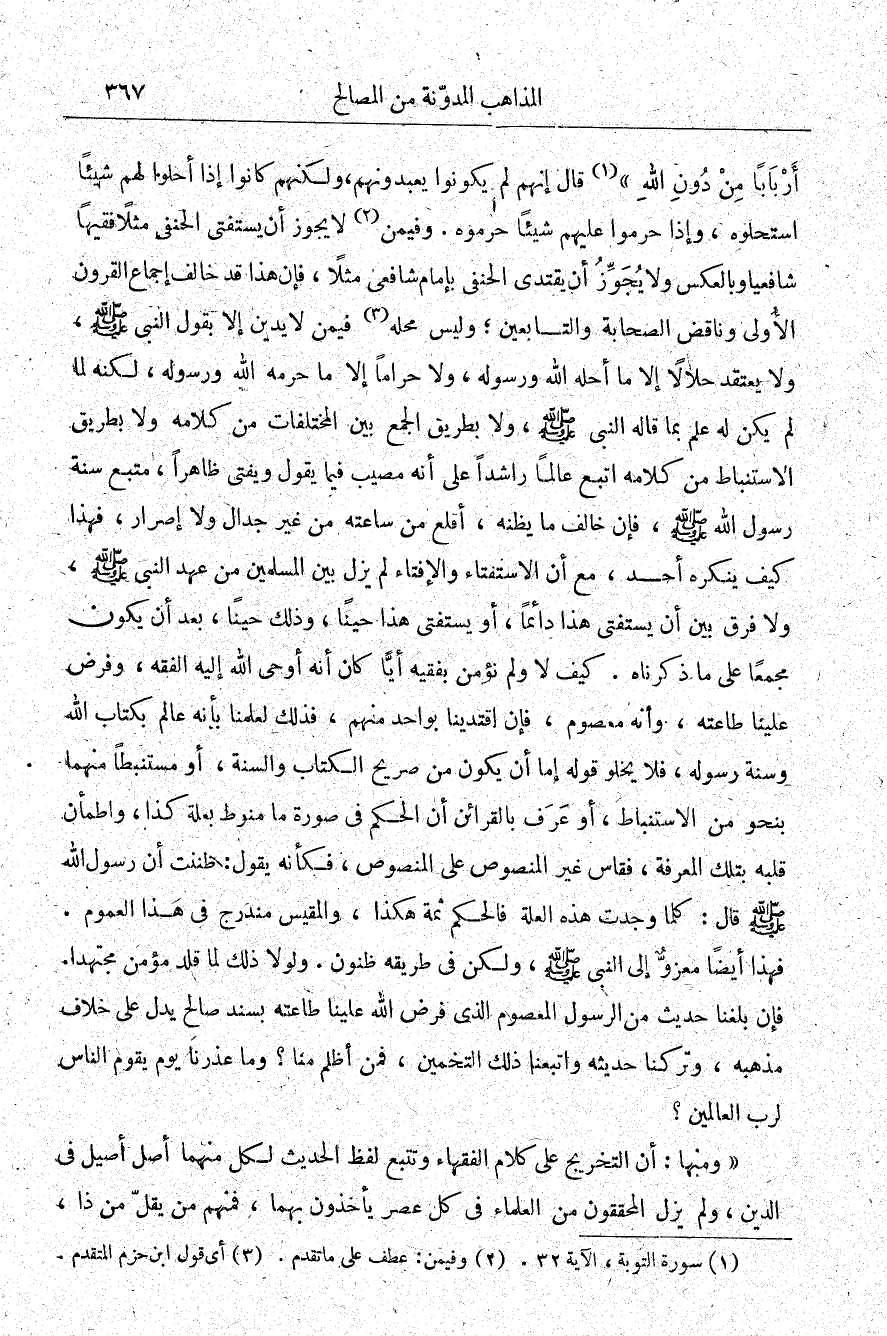 المذاهب المدوّنة من المصالح ٣٦٧
أَرْبَابًا مِنْ دُونِ اللهِ »(١) قال إنهم لم يكونوا يعبدونهم، ولكنهم كانوا إذا أحلوا لهم شيئًا
استحلوه ، وإذا حرموا عليهم شيئًا حرموه . وفيمن(٢) لايجوز أن يستفتى الحنفى مثلًا فقيهًا
شافعيا وبالعكس ولا يُجَوِّزُ أن يقتدى الحنفى بإمام شافعى مثلًا ، فإن هذا قد خالف إجماع القرون
الأُولى وناقض الصحابة والتابعين ؛ وليس محله(٣) فيمن لا يدين إلا بقول النبى ﷺ ،
ولا يعتقد حلالًا إلا ما أحله الله ورسوله ، ولا حراماً إلا ما حرمه الله ورسوله ، لكنه لما
لم يكن له علم بما قاله النبى ﷺ ، ولا بطريق الجمع بين المختلفات من كلامه ولا بطريق
الاستنباط من كلامه اتبع عالماً راشداً على أنه مصيب فيما يقول ويفتى ظاهراً ، متبع سنة
رسول الله ﷺ ، فإن خالف ما يظنه ، أقلع من ساعته من غير جدال ولا إصرار ، فهذا
كيف ينكره أحد ، مع أن الاستفتاء والإفتاء لم يزل بين المسلمين من عهد النبى ﷺ ،
ولا فرق بين أن يستفتى هذا دائماً ، أو يستفتى هذا حينًا ، وذلك حينًا ، بعد أن يكون
مجمعًا على ما ذكرناه . كيف لا ولم نؤمن بفقيه أيًّا كان أنه أوحى الله إليه الفقه ، وفرض
علينا طاعته ، وأنه معصوم ، فإن اقتدينا بواحد منهم ، فذلك لعلمنا بأنه عالم بكتاب الله
وسنة رسوله ، فلا يخلو قوله إما أن يكون من صريح الكتاب والسنة ، أو مستنبطاً منهما
بنحو من الاستنباط ، أو عَرَف بالقرائن أن الحكم فى صورة ما منوط بعلة كذا ، واطمأن
قلبه بتلك المعرفة ، فقاس غير المنصوص على المنصوص ، فكأنه يقول: ظننت أن رسول الله
ﷺ قال : كلما وجدت هذه العلة فالحكم ثمة هكذا ، والمقيس مندرج فى هذا العموم .
فهذا أيضًا معزوٌّ إلى النبى ﷺ ، ولكن فى طريقه ظنون . ولولا ذلك لما قلد مؤمن مجتهدا.
فإن بلغنا حديث من الرسول المعصوم الذى فرض الله علينا طاعته بسند صالح يدل على خلاف
مذهبه ، وتركنا حديثه واتبعنا ذلك التخمين ، فمن أظلم منا ؟ وما عذرنا يوم يقوم الناس
لرب العالمين ؟
« ومنها : أن التخريج على كلام الفقهاء وتتبع لفظ الحديث لكل منهما أصل أصيل فى
الدين ، ولم يزل المحققون من العلماء فى كل عصر يأخذون بهما ، فمنهم من يقلّ من ذا ،
(١) سورة التوبة ، الآية ٣٢ . (٢) وفيمن: عطف على ماتقدم . (٣) أى قول ابن حزم المتقدم .